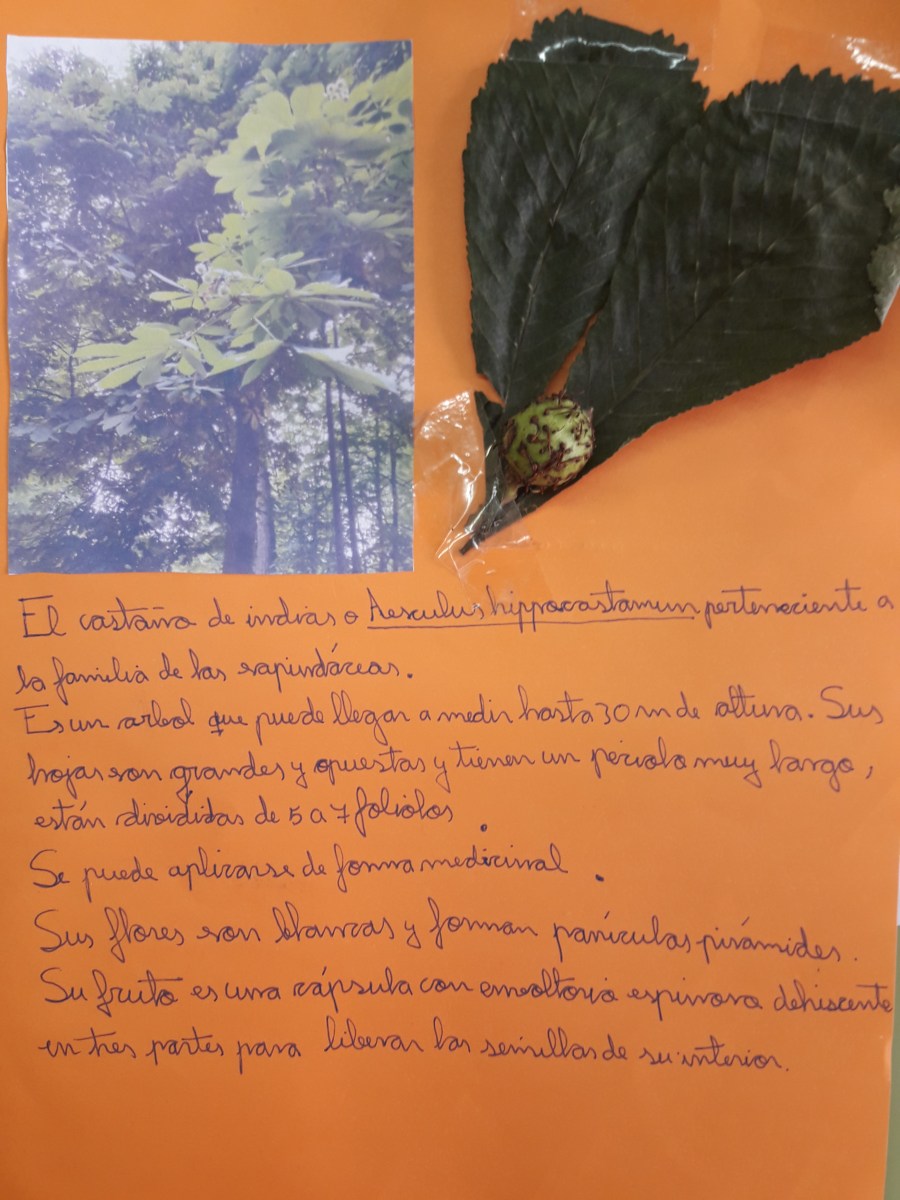 El castaño de indias o Aesculus hippocastamun perteneciente a
la familia de las sapindáceas.
Es un arbol que puede llegar a medir hasta 30 m de altura. Sus
hojas son grandes y opuestas y tienen un peciolo muy largo,
están divididas de 5 a 7 foliolos.
Se puede aplicarse de forma medicinal.
Sus flores son blancas y forman panículas pirámides.
Su fruto es una cápsula con envoltorio espinosa dehiscente
en tres partes para liberar las semillas de su interior.